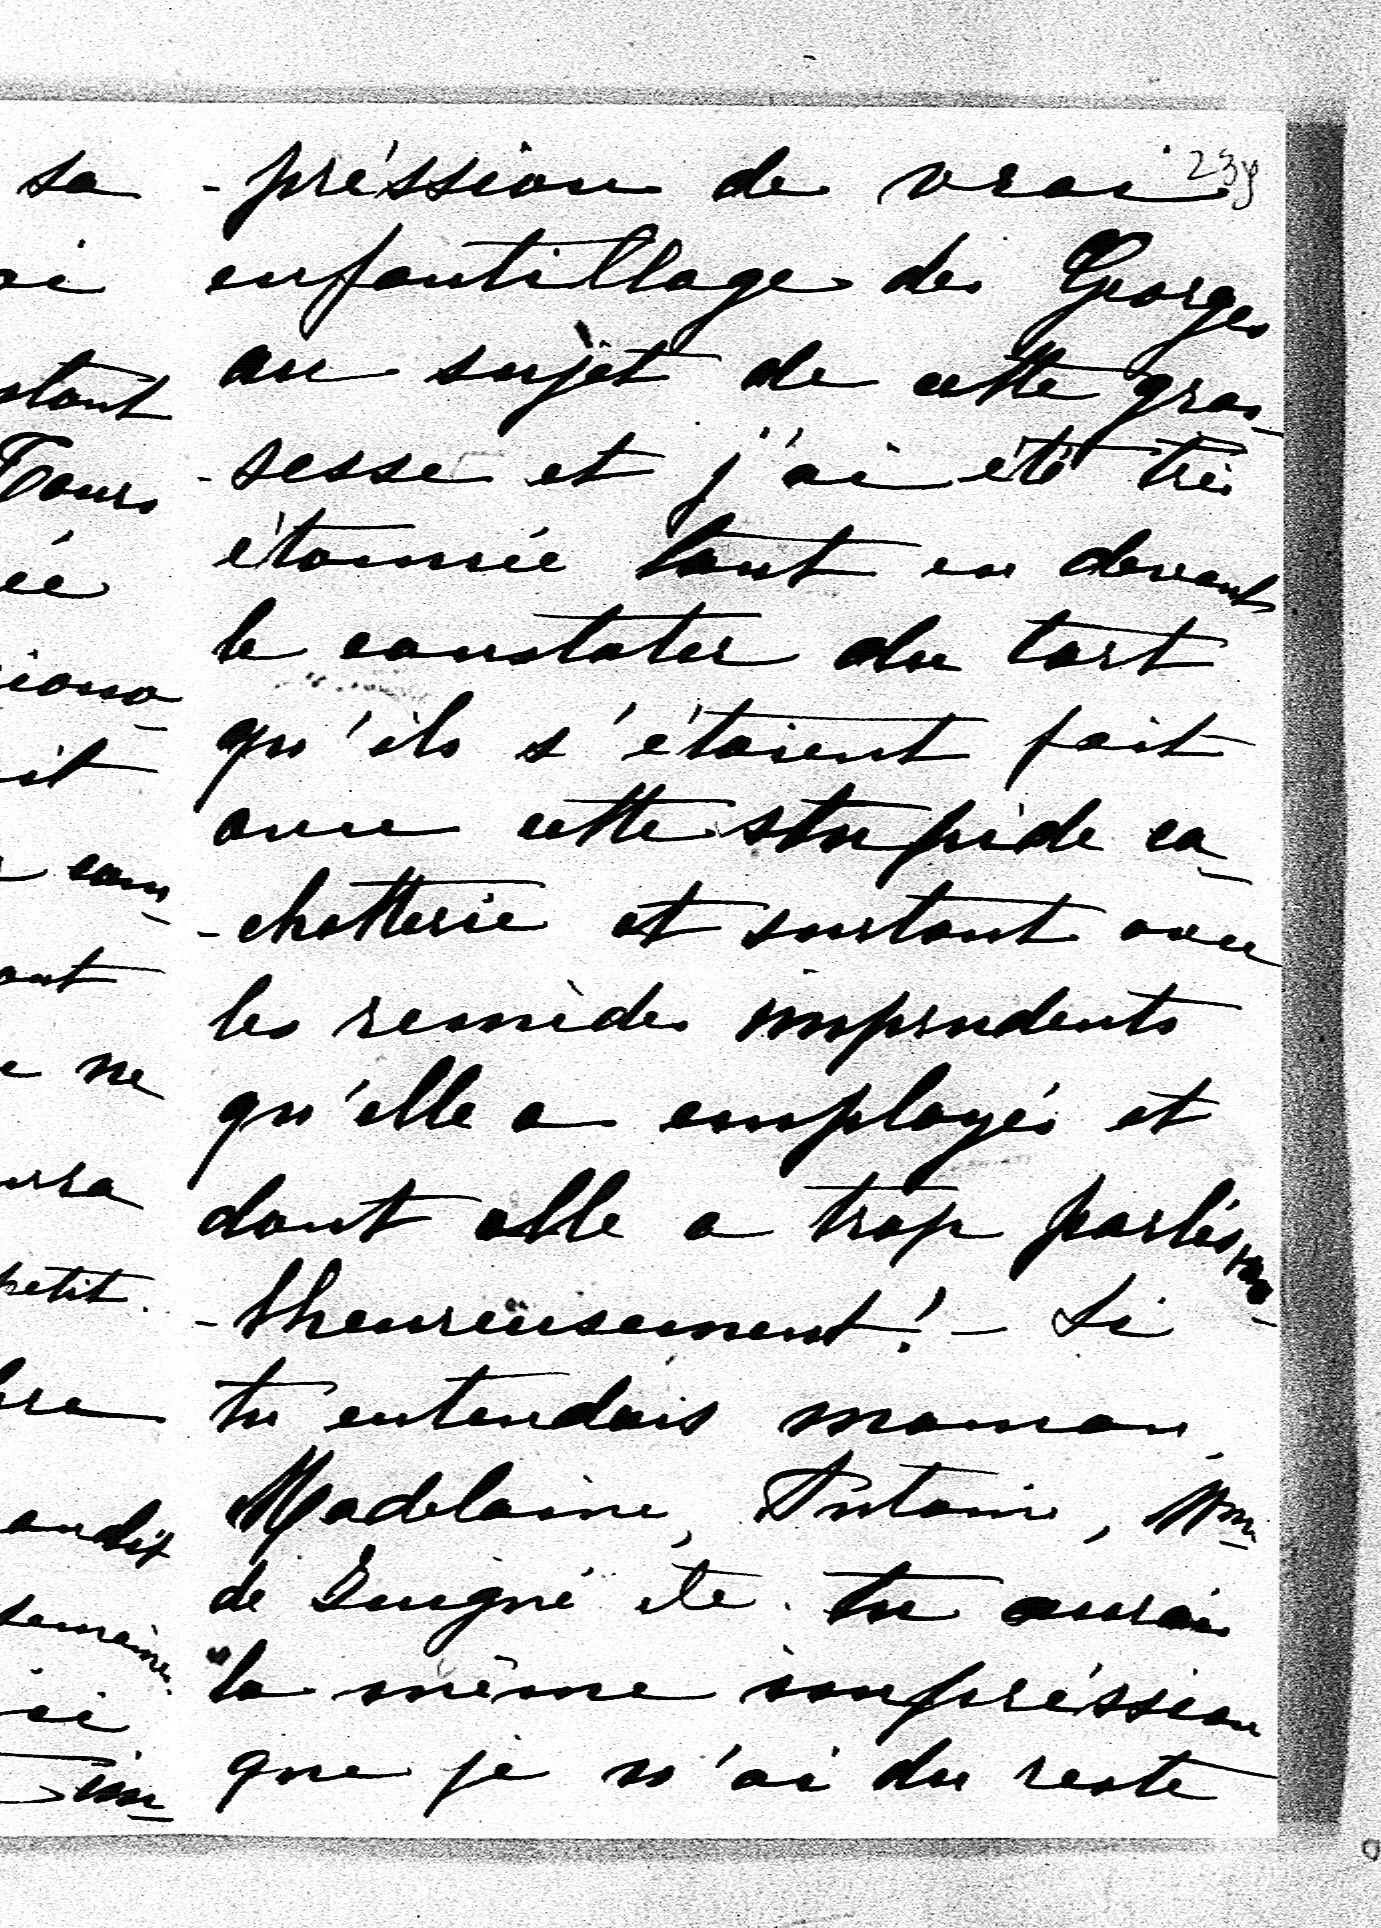 -préssion de vrai
enfantillage de Georges
au sujet de cette gros-
-sesse et j'ai été très
étonnée tout en devant
le constater du tort
qu'ils s'étaient fait
avec cette stupide ca-
-chotterie et surtout avec
les remèdes imprudents
qu'elle a employés et
dont elle a trop parlés, ma-
-lheureusement! - Si
tu entendais maman,
Madelaine, Antoine, Mme
de Guigné etc. tu aurais
la même impréssion
que je n'ai du reste
sa
ai
stant
Tours
ée
siono-
ait
com-
ant
ne
petit.
bre
semaine
ici
im-